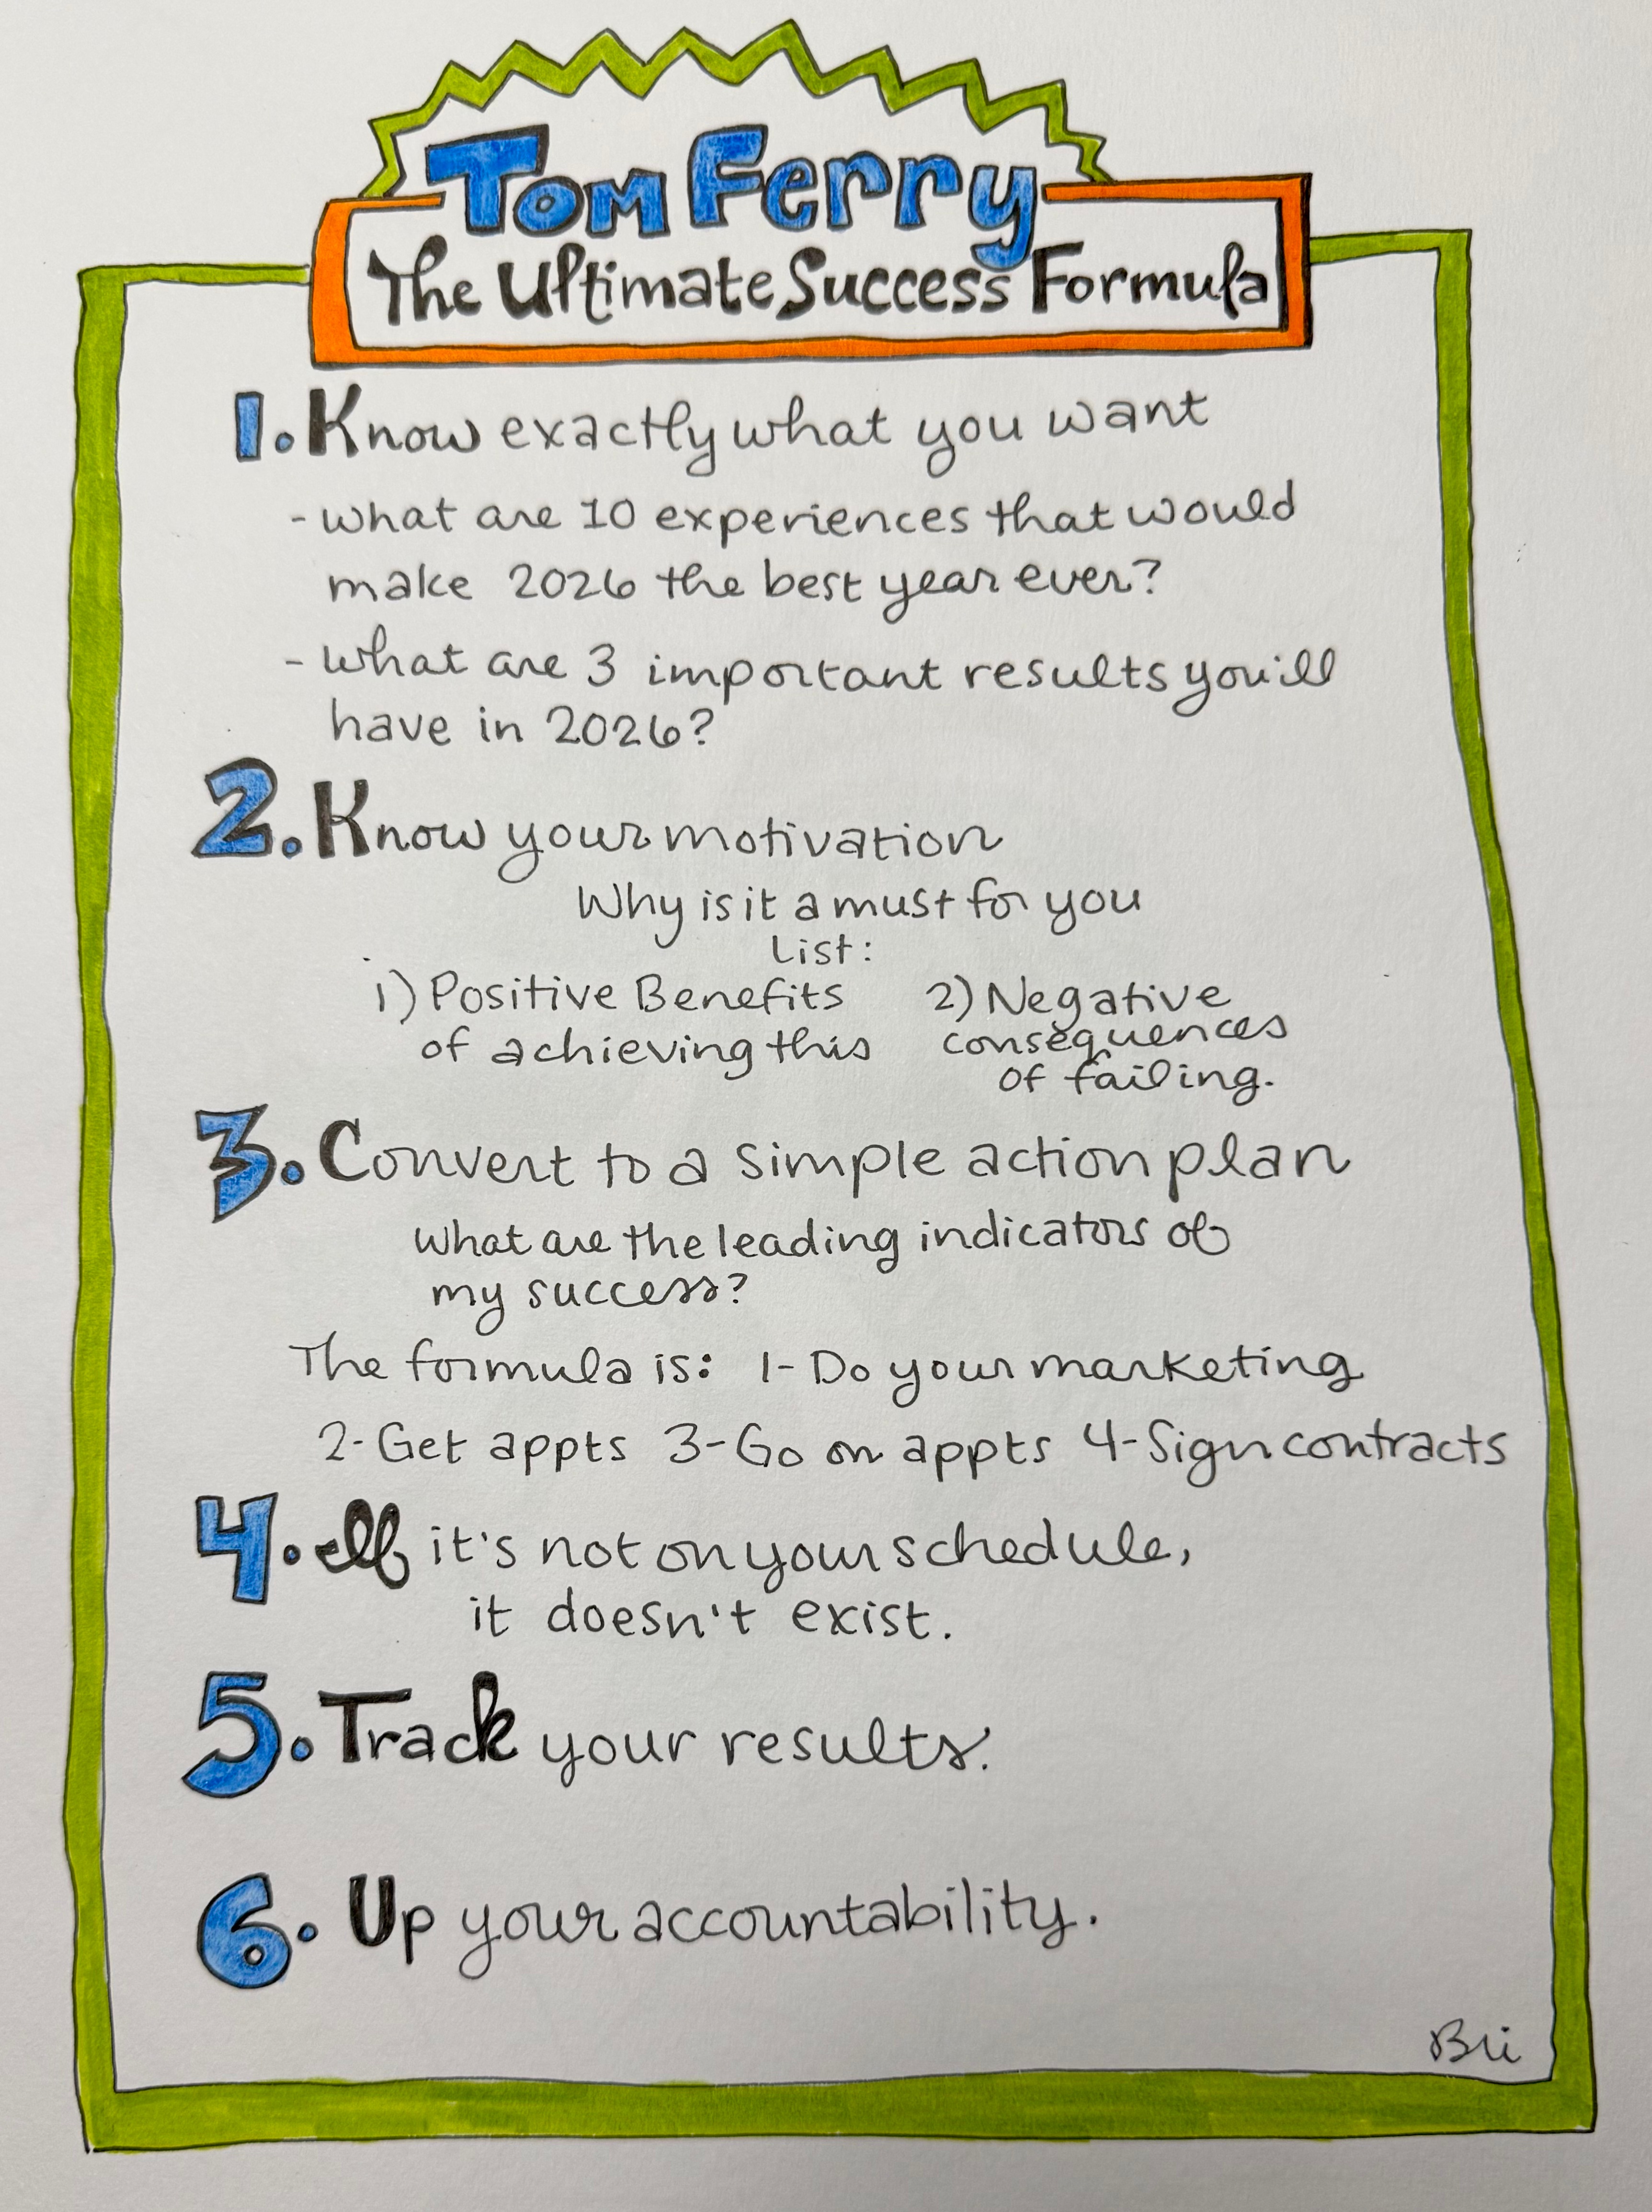 Tom Ferry
The Ultimate Success Formula
1. Know exactly what you want
- what are 10 experiences that would
make 2026 the best year ever?
- what are 3 important results you'll
have in 2026?
2. Know your motivation
Why is it a must for you
List:
1) Positive Benefits
of achieving this
2) Negative
consequences
of failing.
3. Convert to a simple action plan
What are the leading indicators of
my success?
The formula is: 1- Do your marketing
2- Get appts 3- Go on appts 4- Sign contracts
4. If it's not on your schedule,
it doesn't exist.
5. Track your results.
6. Up your accountability.
Bri